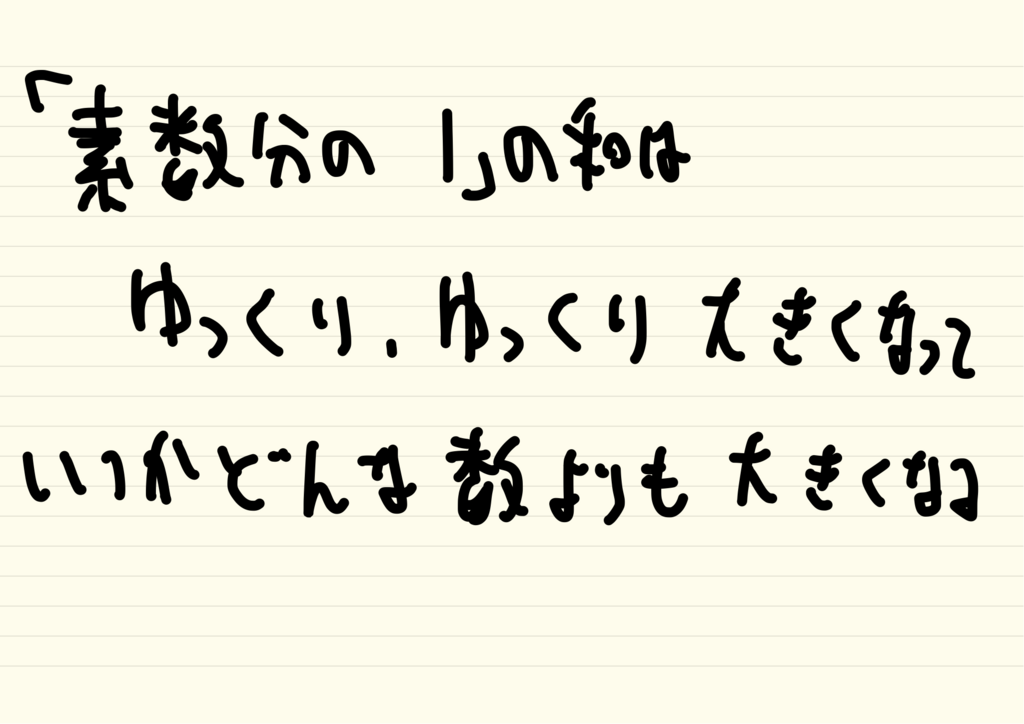 「素数分の1」の和は
ゆっくり、ゆっくり大きくなって
いつかどんな数よりも大きくなる